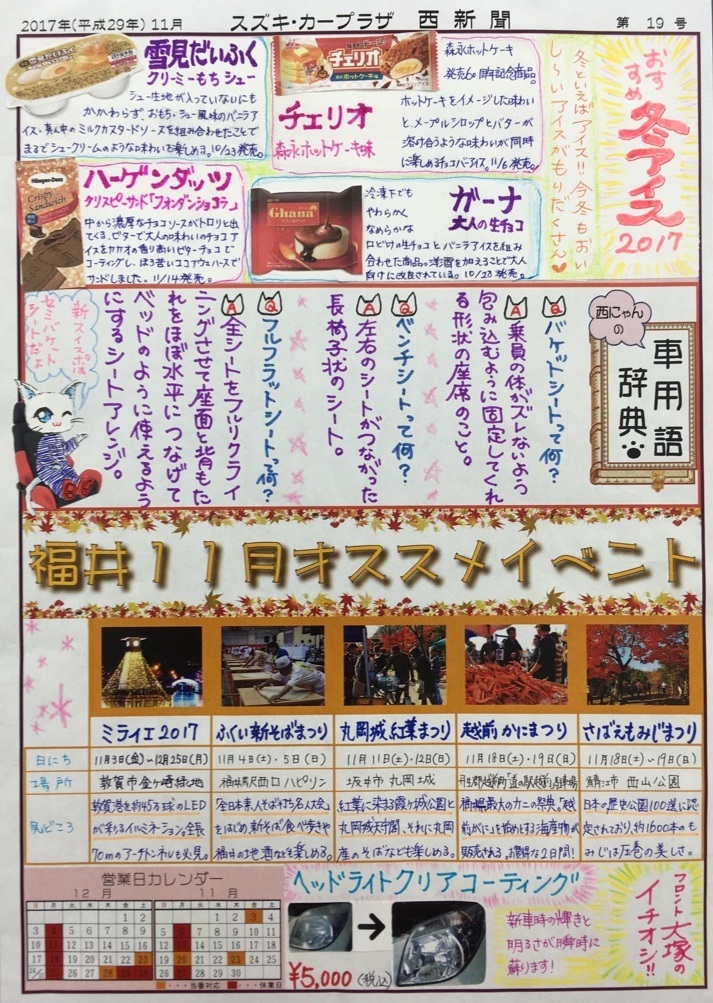 2017年(平成29年) 11月
スズキ・カープラザ 西新聞
第 19 号
おすすめ
冬アイス
2017
冬といえばアイス!!今冬もおい
し〜いアイスがもりだくさん♥
雪見だいふく
クリーミーもちシュー
シュー生地が入っていないにも
かかわらず、おもち・シュー風味のバニラア
イス・真ん中のミルクカスタードソースを組み合わせたことで
まるでシュークリームのような味わいを楽しめる。10/23発売。
チェリオ
森永ホットケーキ味
森永ホットケーキ
発売60周年記念商品。
ホットケーキをイメージした味わい
と、メープルシロップとバターが
溶け合うような味わいが同時
に楽しめるチョコバーアイス。11/6発売。
ハーゲンダッツ
クリスピーサンド「フォンダンショコラ」
中から濃厚なチョコソースがトロリと出
てくる、ビターで大人の味わいのチョコア
イスをカカオの香り高いビターチョコで
コーティングし、ほろ苦いココアウェハースで
サンドしました。11/14発売。
Häagen-Dazs
Crispy
Sandwich
Ghana
ガーナ
大人の生チョコ
冷凍下でも
やわらかく
なめらかな
口どけの生チョコとバニラアイスを組み
合わせた商品の洋酒を加えることで大人
向けに改良されている。10/23発売。
西にゃんの
車用語
辞典
Q バケットシートって何?
A 乗員の体がズレないよう
包み込むように固定してくれ
る形状の座席のこと。
Q ベンチシートって何?
A 左右のシートがつながった
長椅子状のシート。
Q フルフラットシートって何?
A 全シートをフルリクライ
ニングさせて座面と背もた
れをほぼ水平につなげて
ベッドのように使えるよう
にするシートアレンジ。
新スイスポは
セミバケット
シートだよ
福井11月オススメイベント
ミライエ2017
ふくい新そばまつり
丸岡城紅葉まつり
越前かにまつり
さばえもみじまつり
日にち
11月3日(金)〜12月25日(月)
11月4日(土)・5日(日)
11月11日(土)・12日(日)
11月18日(土)・19日(日)
11月18日(土)〜19日(日)
場所
敦賀市金ヶ崎緑地
福井駅西口ハピリン
坂井市 丸岡城
丹生郡越前町「道の駅越前」駐車場
鯖江市 西山公園
見どころ
敦賀港を約45万球のLED
が彩るイルミネーション。全長
70mのアーチトンネルも必見。
「全日本素人そば打ち名人大会」
をはじめ、新そば食べ歩きや
福井の地酒なども楽しめる。
紅葉に染まる霞ヶ城公園と
丸岡城天守閣、それに丸岡
産のそばなども楽しめる。
福井県最大のカニの祭典。「越
前がに」を始めとする海産物が
販売される。お得な2日間!
日本の歴史公園100選に認
定されており、約1600本のも
みじは圧巻の美しさ。
営業日カレンダー
12月
11月
日 月 火 水 木 金 土
1 2
3 4 5 6 7 8 9
10 11 12 13 14 15 16
17 18 19 20 21 22 23
24/31 25 26 27 28 29 30
日 月 火 水 木 金 土
1 2 3 4
5 6 7 8 9 10 11
12 13 14 15 16 17 18
19 20 21 22 23 24 25
26 27 28 29 30
・・・当番対応
・・・休業日
ヘッドライトクリアコーティング
¥5,000(税込)
新車時の輝きと
明るさが瞬時に
蘇ります!
フロント大塚の
イチオシ!!